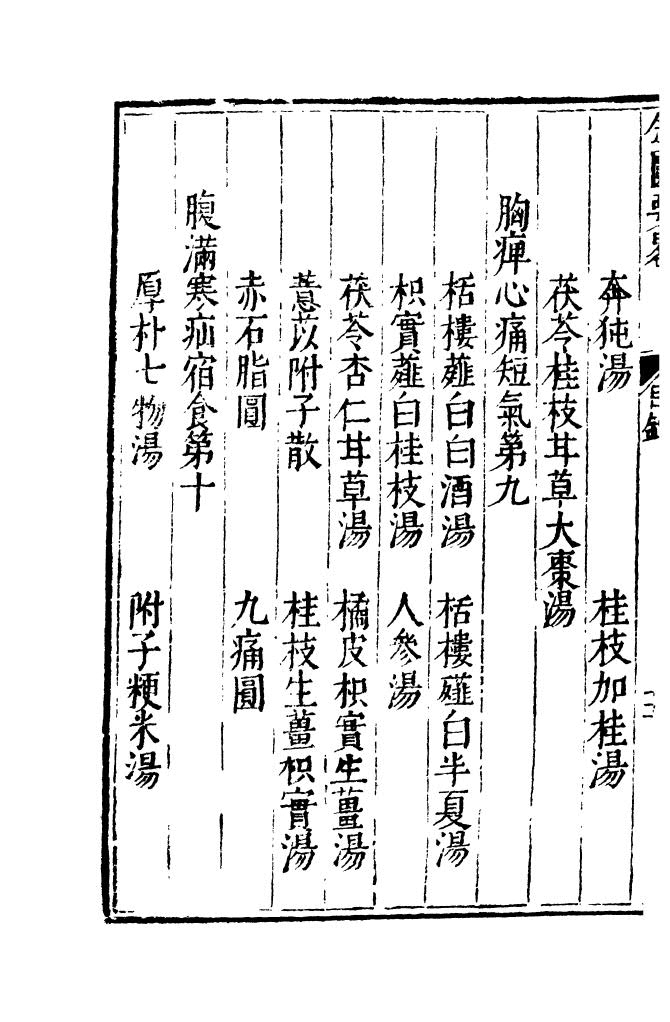 奔㹠湯 桂枝加桂湯
茯苓桂枝甘草大棗湯
胸痺心痛短氣第九
栝樓薤白白酒湯 栝樓薤白半夏湯
枳實薤白桂枝湯 人參湯
茯苓杏仁甘草湯 橘皮枳實生薑湯
薏苡附子散 桂枝生薑枳實湯
赤石脂圓 九痛圓
腹滿寒疝宿食第十
厚朴七物湯 附子粳米湯